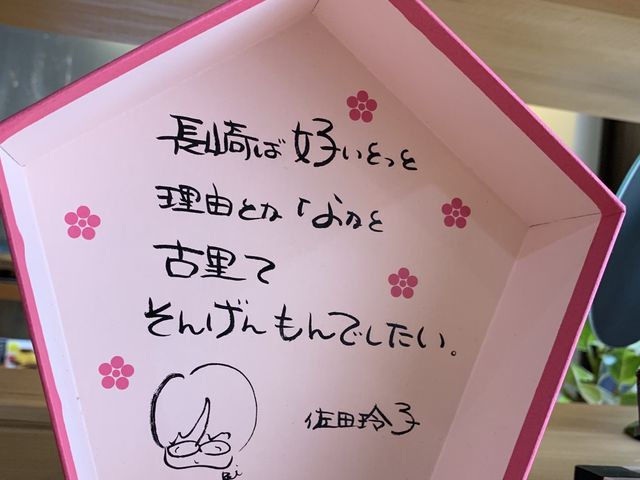 長崎ば好いとっと
理由とか「なかと
古里て
そんげんもんでしたい。
佐田玲子